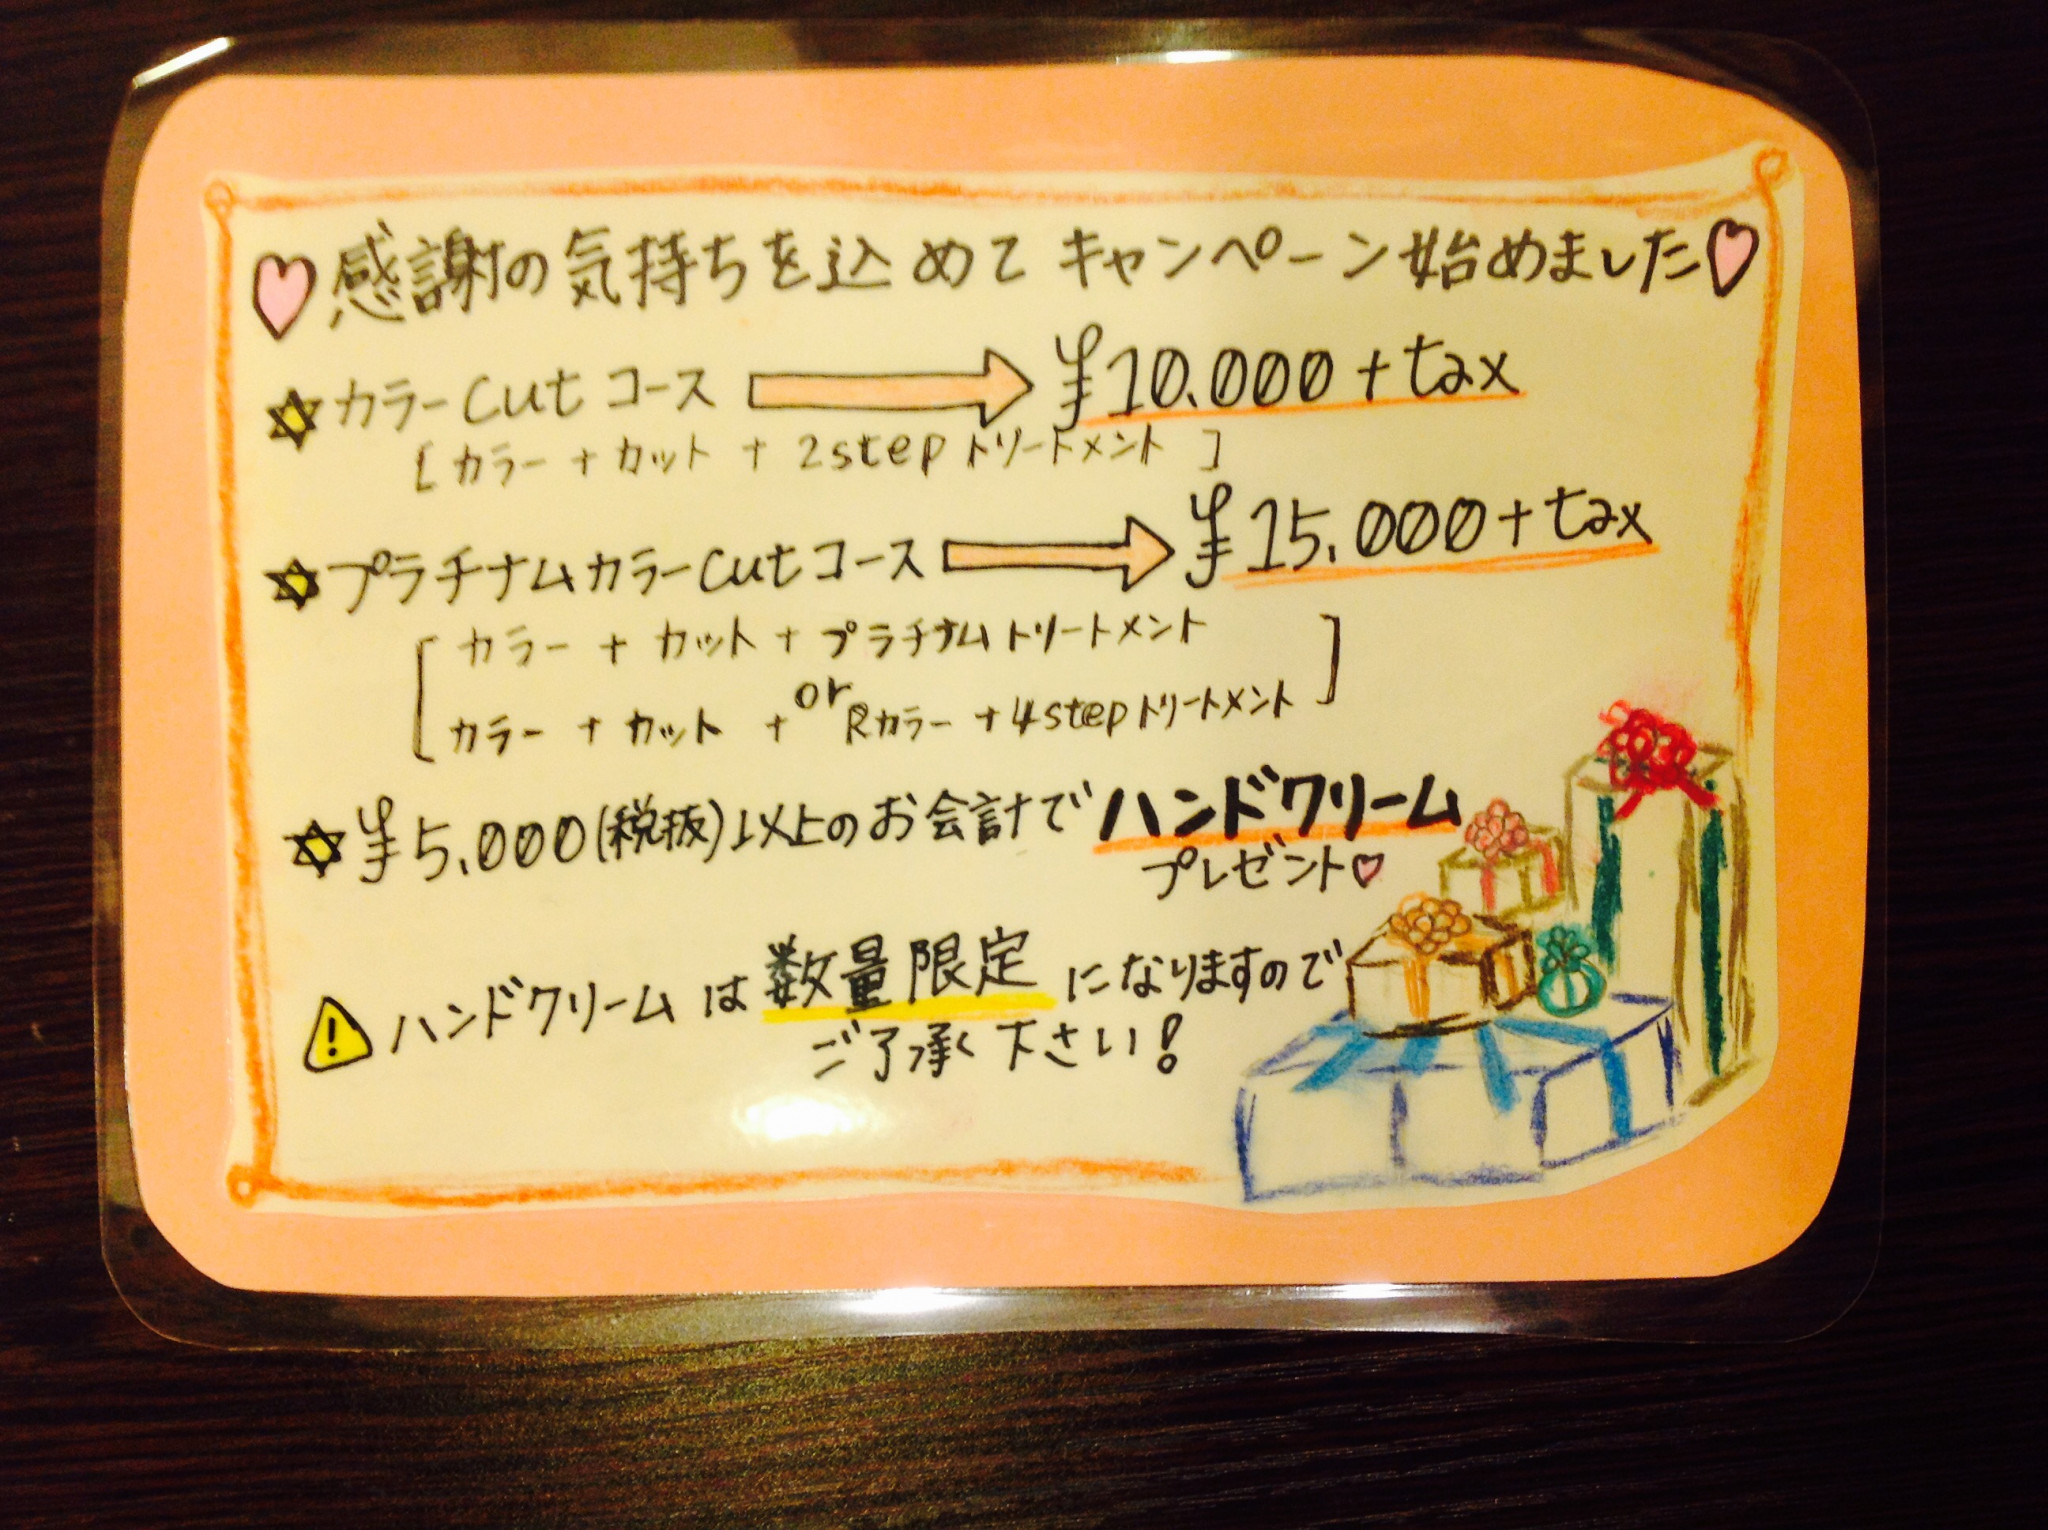 感謝の気持ちを込めてキャンペーン始めました
カラーcutコース ¥10.000+tax
[カラー+カット+2stepトリートメント]
プラチナムカラーcutコース ¥15,000+tax
カラー+カット+プラチナムトリートメント
or
カラー+カット+Rカラー+4stepトリートメント
¥5,000(税抜)以上のお会計でハンドクリーム
プレゼント♡
ハンドクリームは数量限定になりますので
ご了承く下さい!